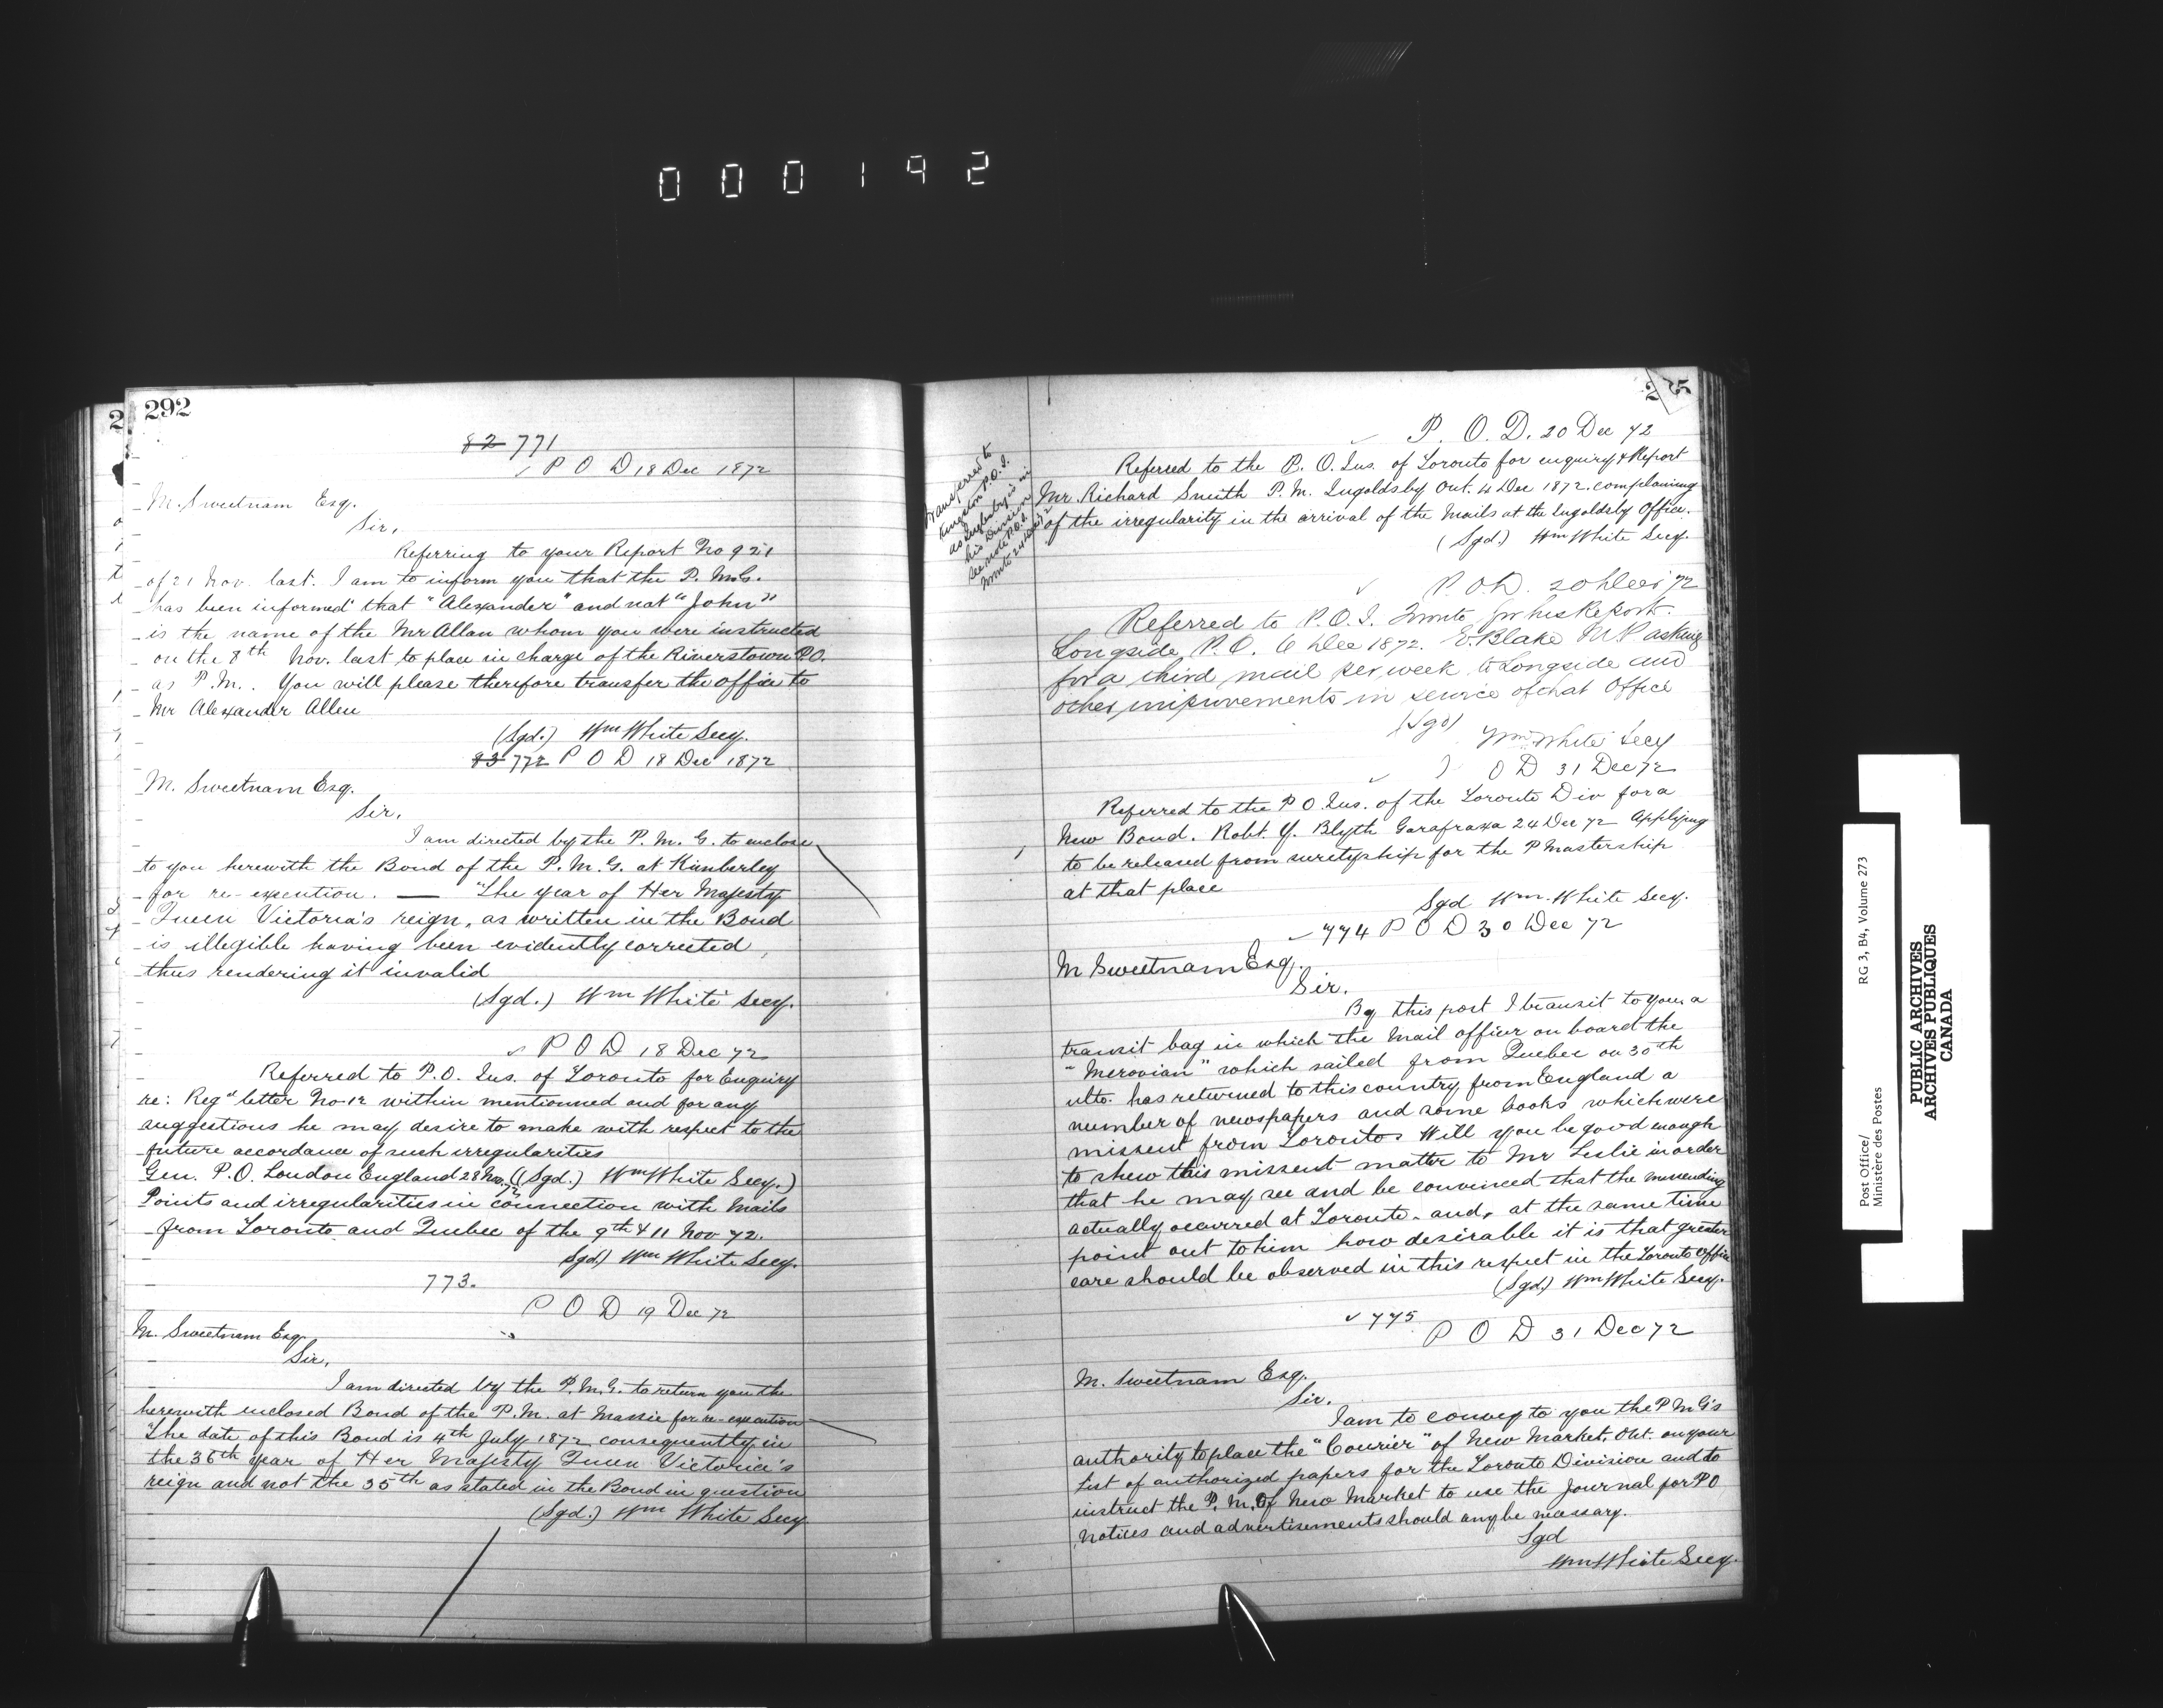 000192
292
82 771
P O D 18 Dec 1872
M. Sweetnam Esq.
Sir,
Referring to your Report No 921
of 21 Nov. last. I am to inform you that the P. M. G.
has been informed that "Alexander" and not "John"
is the name of the Mr Allan whom you were instructed
on the 8th Nov. last to place in charge of the Riverstown P.O.
as P.M.. You will please therefore transfer the office to
Mr Alexander Allen
(Sgd.) Wm White Secy.
83 772 P O D 18 Dec 1872
M. Sweetnam Esq.
Sir,
I am directed by the P. M. G. to enclose
to you herewith the Bond of the P. M. G. at Kimberley
for re-execution. — "The year of Her Majesty
Queen Victoria's reign, as written in the Bond
is illegible having been evidently corrected,
thus rendering it invalid
(Sgd.) Wm White Secy.
P O D 18 Dec 72
Referred to P.O. Ins. of Toronto for Enquiry
re: Regd letter No. 12 within mentionned and for any
suggestions he may desire to make with respect to the
future accordance of such irregularities
Gen. P.O. London England 28 Nov. 72 ((Sgd.) Wm White Secy.)
Points and irregularities in connection with Mails
from Toronto and Quebec of the 9th & 11 Nov 72.
Sgd.) Wm White Secy.
773.
P O D 19 Dec 72
M. Sweetnam Esq.
Sir,
I am directed by the P.M.G. to return you the
herewith enclosed Bond of the P.M. at Massie for re-execution
"The date of this Bond is 4th July 1872 consequently in
the 36th Year of Her Majesty Queen Victoria's
reign and not the 35th as stated in the Bond in question
(Sgd.) Wm White Secy
P. O. D. 20 Dec 72
transferred to
Kingston P.O.I.
as Ingoldsby is in
his Division
see note P.O.I.
Referred to the P. O. Ins. of Toronto for enquiry & Report
Mr. Richard Smith P. M. Ingoldsby Ont. 14 Dec 1872. complaning
of the irregularity in the arrival of the Mails at the Ingoldsby Office.
(Sgd.) Wm White Secy.
P. O. D. 20 Dec 72
Referred to P.O.I. Toronto for his Report.
Longside, P.O. 6 Dec 1872. E. Blake M P asking
for a third mail per week to Longside and
other improvements in service of that Office
(Sgd)
Wm White Secy
P O D 31 Dec 72
Referred to the P O. Ins. of the Toronto Div for a
New Bond. Robt. Y. Blyth Garafraxa 24 Dec 72 Applying
to be released from suretyship for the P Mastership
at that place
Sgd Wm. White Secy.
774 P O D 30 Dec 72
M Sweetnam Esq.
Sir.
By this post I transit to you, a
transit bag in which the Mail officer on board the
"Merovian" which sailed from Quebec on 30th
ulto. has returned to this country from England a
number of newspapers and some books which were
missent from Toronto. Will you be good enough
to shew this missent matter to Mr Leslie in order
that he may see and be convinced that the missending
actually occurred at Toronto. and, at the same time
point out to him how desirable it is that greater
care should be observed in this respect in the Toronto Office
(Sgd) Wm White Secy.
775
P O D 31 Dec 72
M. Sweetnam Esq.
Sir.
I am to convey to you the P M G's
authority to place the "Courier" of New Market. Ont. on your
List of authorized papers for the Toronto Division and to
instruct the P. M. Of New Market to use the Journal for P O
Notices and advertisements should any be necessary.
Sgd
Wm White Secy.
Post Office/ RG 3, B4, Volume 273
Ministère des Postes
PUBLIC ARCHIVES
ARCHIVES PUBLIQUES
CANADA